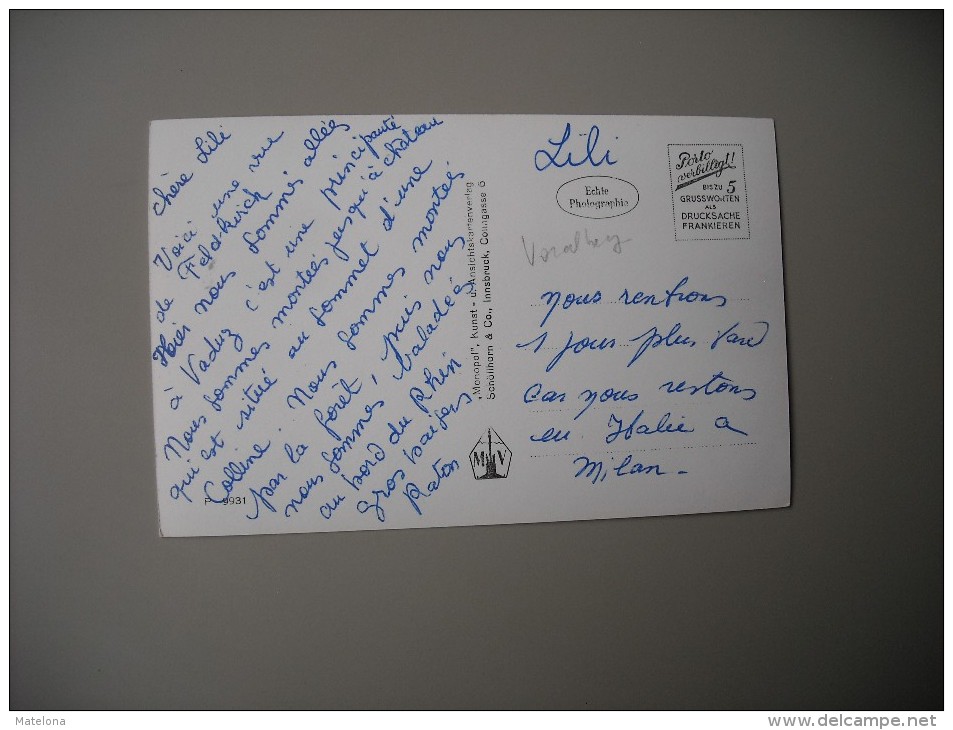 Chère Lili
Voici une vue
de Feldkirch
Hier nous sommes allés
à Vaduz c'est une principauté
Nous sommes montées jusqu'à château
qui est situé au sommet d'une
Colline. Nous sommes montés
par la forêt, puis nous
nous sommes baladés
au bord du Rhin
gros baisers
Raton
P 9931
„Monopol", Kunst- u. Ansichtskartenverlag
Schöllhorn & Co., Innsbruck, Collingasse 5
M V
Lili
Echte
Photographie
Porto
verbilligt!
BIS ZU 5
GRUSSWORTEN
ALS
DRUCKSACHE
FRANKIEREN
Voralberg
nous rentrons
1 jour plus tard
car nous restons
en Italie a
Milan -
Matelona
www.delcampe.net